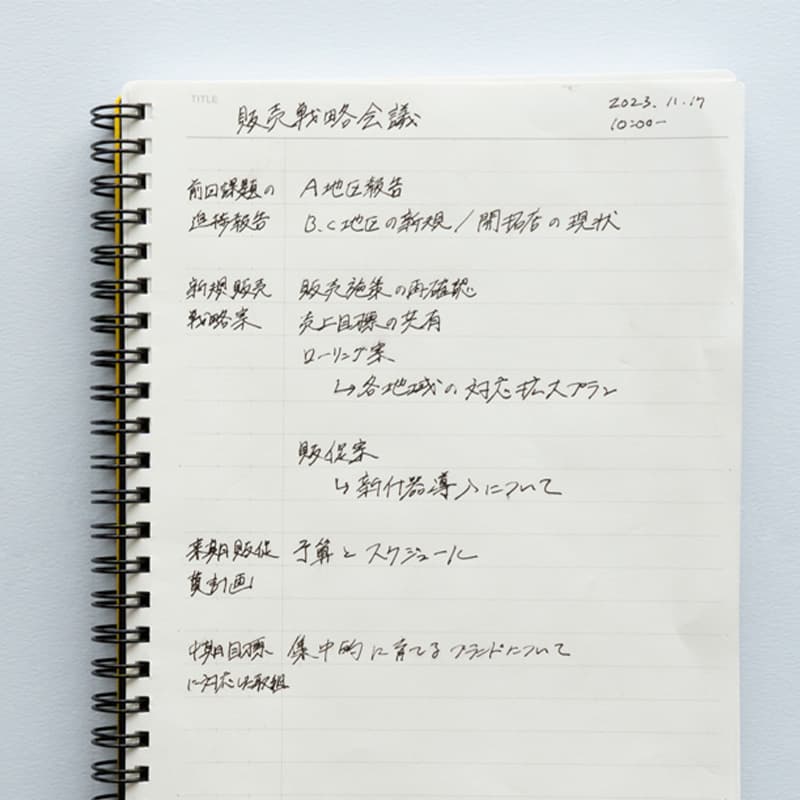 TITLE
販売戦略会議
2023.11.17
10:00ー
前回課題の
進捗報告
A地区報告
B.C地区の新規/開拓店の現状
新規販売
戦略案
販売施策の再確認
売上目標の共有
ローリング案
↳各地域の対応拡大プラン
販促案
↳新什器導入について
来期販促
費計画
予算とスケジュール
中期目標
に対応した取組
集中的に育てるブランドについて